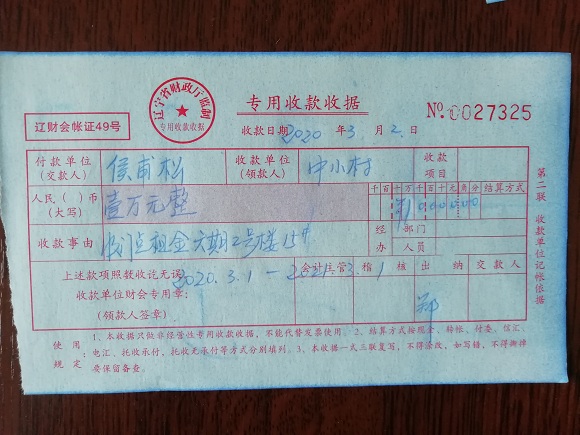 辽宁省财政厅监制
专用收款收据
专用收款收据
No.0027325
辽财会帐证49号
收款日期2020年3月2日
付款单位(交款人) 侯甫松 收款单位(领款人) 中小村 收款项目
人民()币(大写) 壹万元整 千百十万千百十元角分 结算方式
¥1000000
收款事由 门点租金六期2号楼15# 经办 部门 人员
上述款项照数收讫无误 2020.3.1-2021.3.1 会计主管 稽核 出纳 交款人
收款单位财会专用章:
(领款人签章) 郑
使用规定 1、本收据只做非经营性专用收款收据,不能代替发票使用。2、结算方式按现金、转帐、付委、信汇、
电汇、托收承付,托收无承付等方式分别填列。3、本收据一式三联复写,不得涂改,如写错,不得撕掉
要保留备查。
第二联 收款单位记帐依据